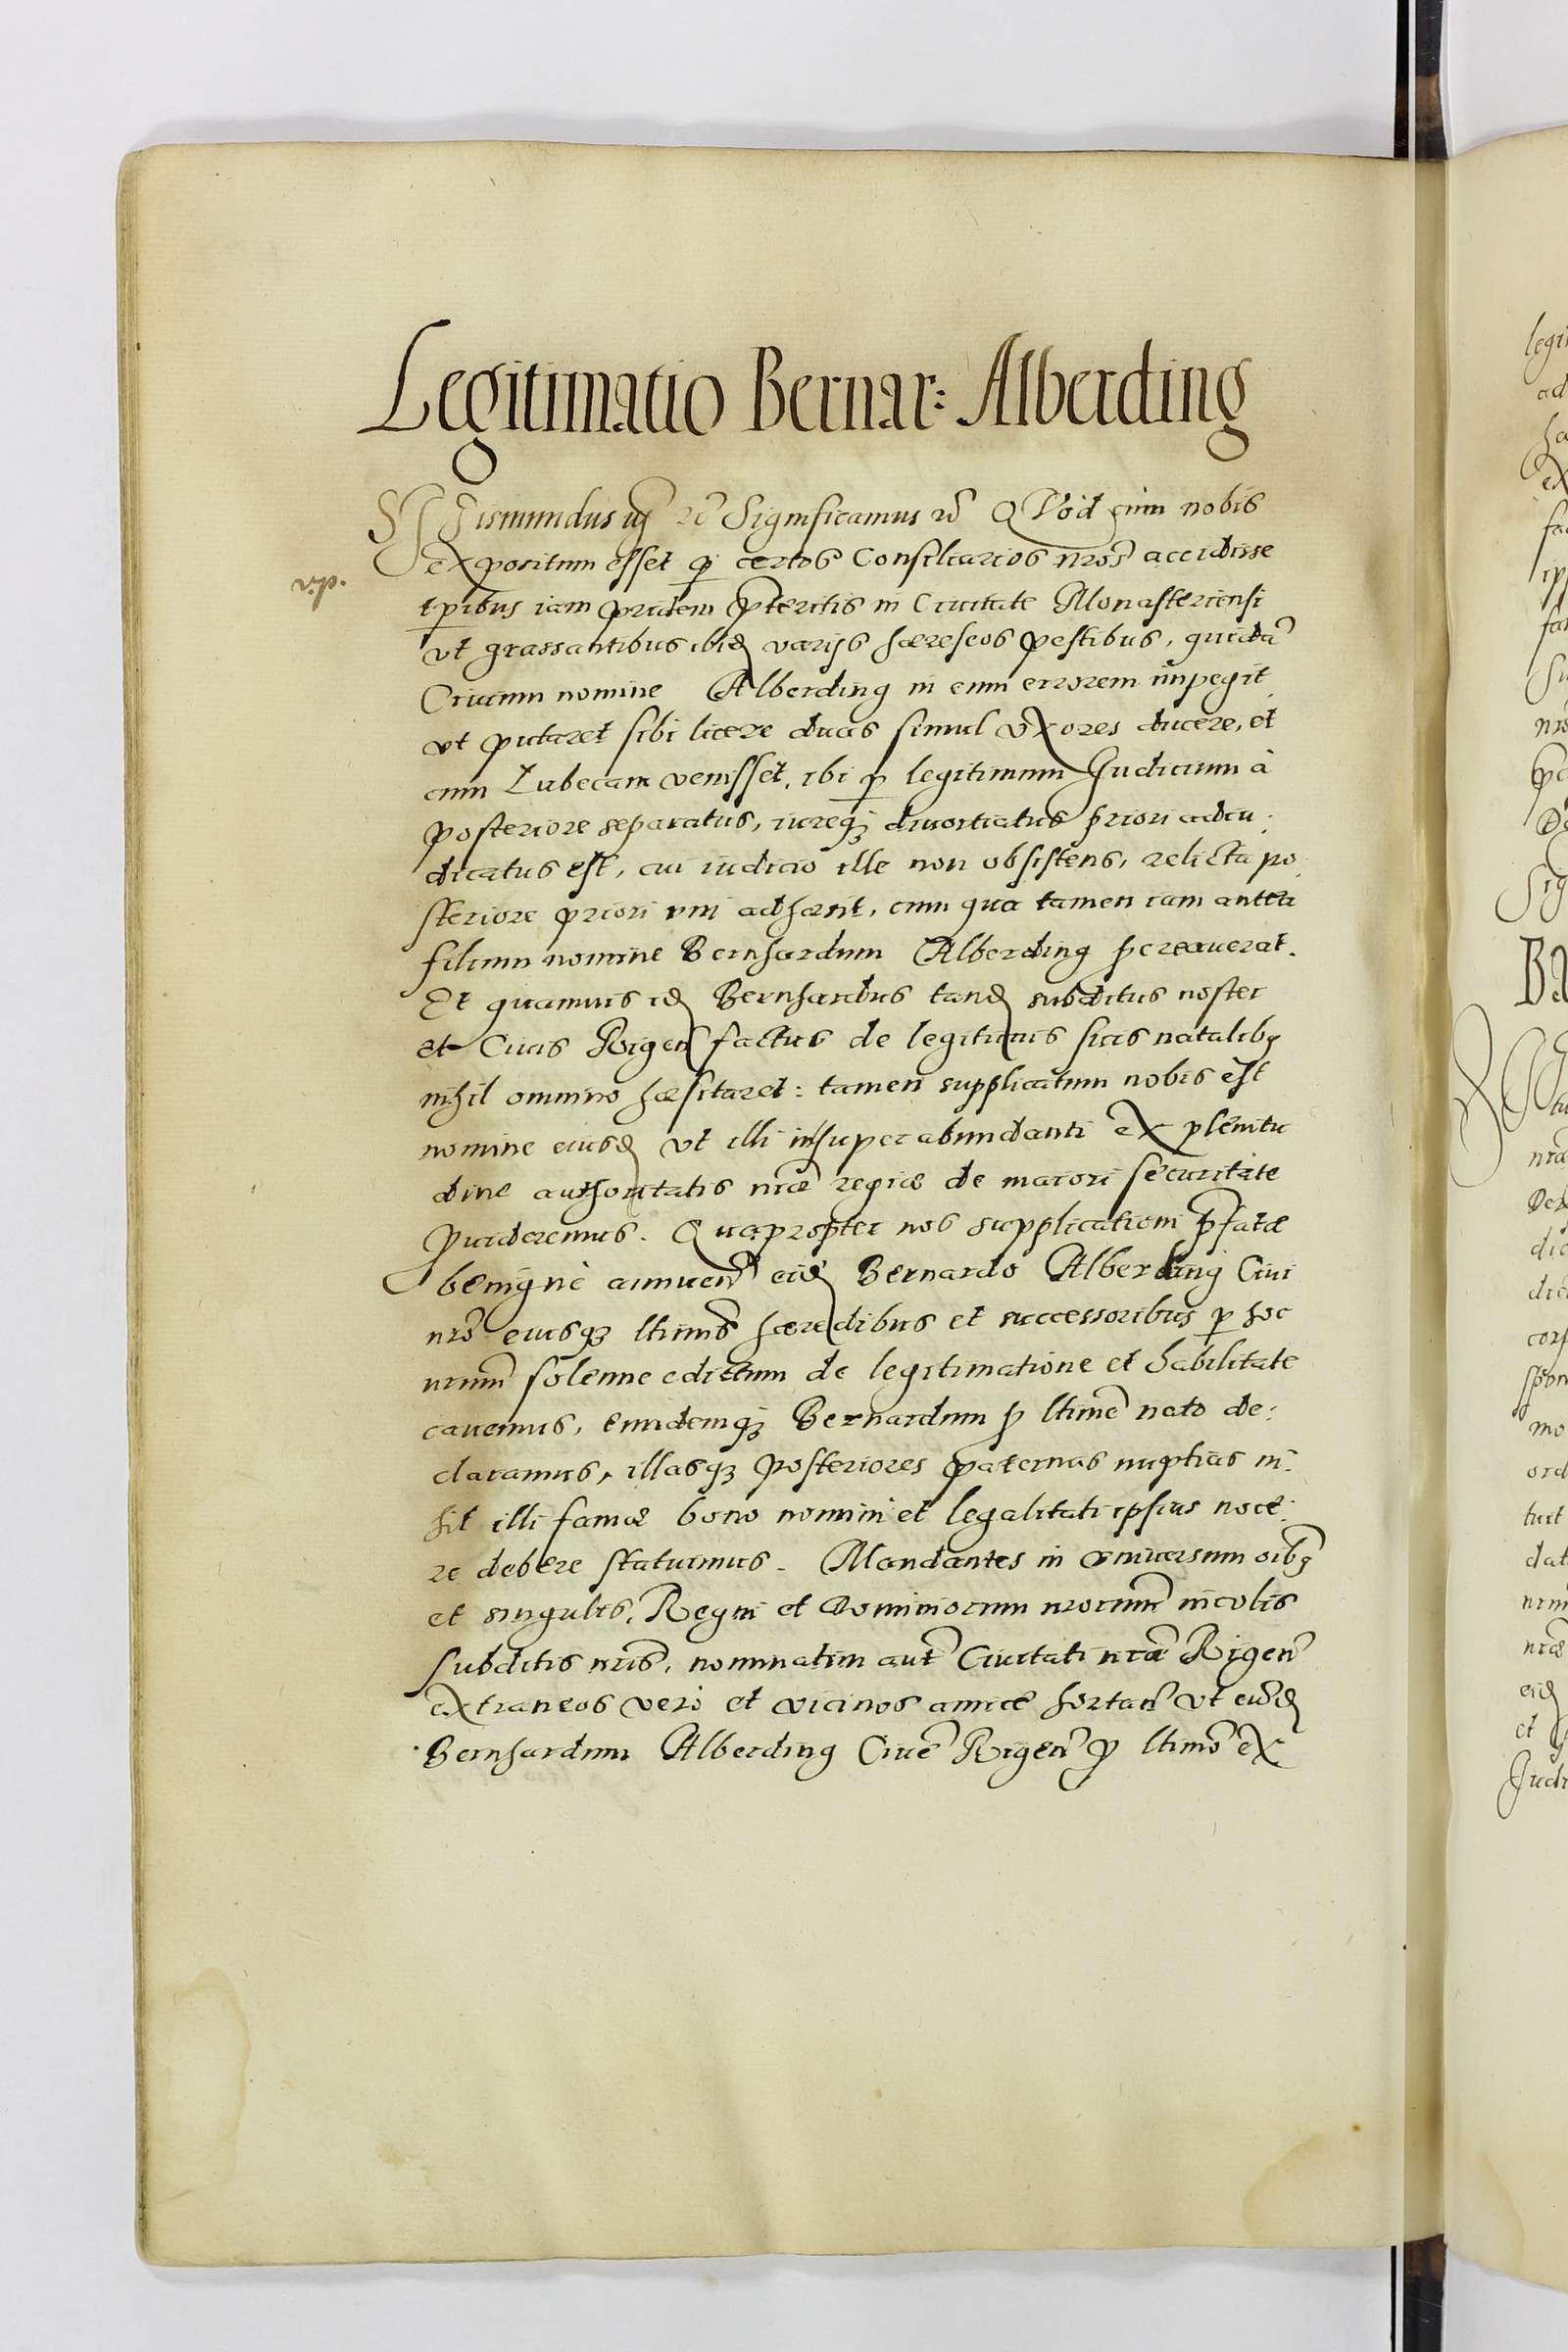 Legitimatio Bernar: Alberding
SIgismundus iij etc̃ Significamus etc̃ QVod cum nobis
expositum esset ꝑ certos Consiliarios nr̃os accidisse
vip.
tꝑibus iam pridem p̃teritis in Ciuitate Monasteriensi
vt grassantibus ibid varijs hæreseos pestibus, quidã
Ciuium nomine Alberding in eum errorem impegit
vt putaret sibi licere duas simul vxores ducere, et
cum Lubecam venisset, ibi ꝑ legitimum Iudicium à
posteriore separatus, iureqȝ diuortiatus priori adiu:
dicatus est, cui iudicio ille non obsistens, relicta po
steriore priori vni adhæsit, cum qua tamen iam antea
filium nomine Bernhardum Alberding p̱creauerat.
Et quamuis id Bernhardus tand subditus noster
et Ciuis Rigeñ factus de legitimis suis natalibȝ
nihil omnino hæsitaret: tamen supplicatum nobis est
nomine eiusd vt illi insuper abundanti ex plenitu
dine authoritatis nr̃æ regiæ de maiori securitate
ꝓuideremus. Quapropter nos supplicationi p̃fatæ
benignè annueñ eid Bernardo Alberding Ciui
nr̃o eiusqȝ ltimis̃ hæredibus et successoribus ꝑ hoc
nr̃um solenne edictum de legitimatione et habilitate
cauemus, eundemqȝ Bernardum ꝓ ltimẽ nato de:
claramus, illasqȝ posteriores paternas nuptias ni:
hil illi famæ bono nomini et legalitati ipsius noce:
re debere statuimus. Mandantes in vniuersum oĩbȝ
et singulis, Regni et Dominiorum nr̃orum incolis
subditis nr̃is, nominatim aut̃ Ciuitati nr̃æ Rigeñ
extraneos verò et vicinos amicè hortañ vt eund
Bernhardum Alberding Ciuẽ Rigeñ ꝓ ltimõ ex